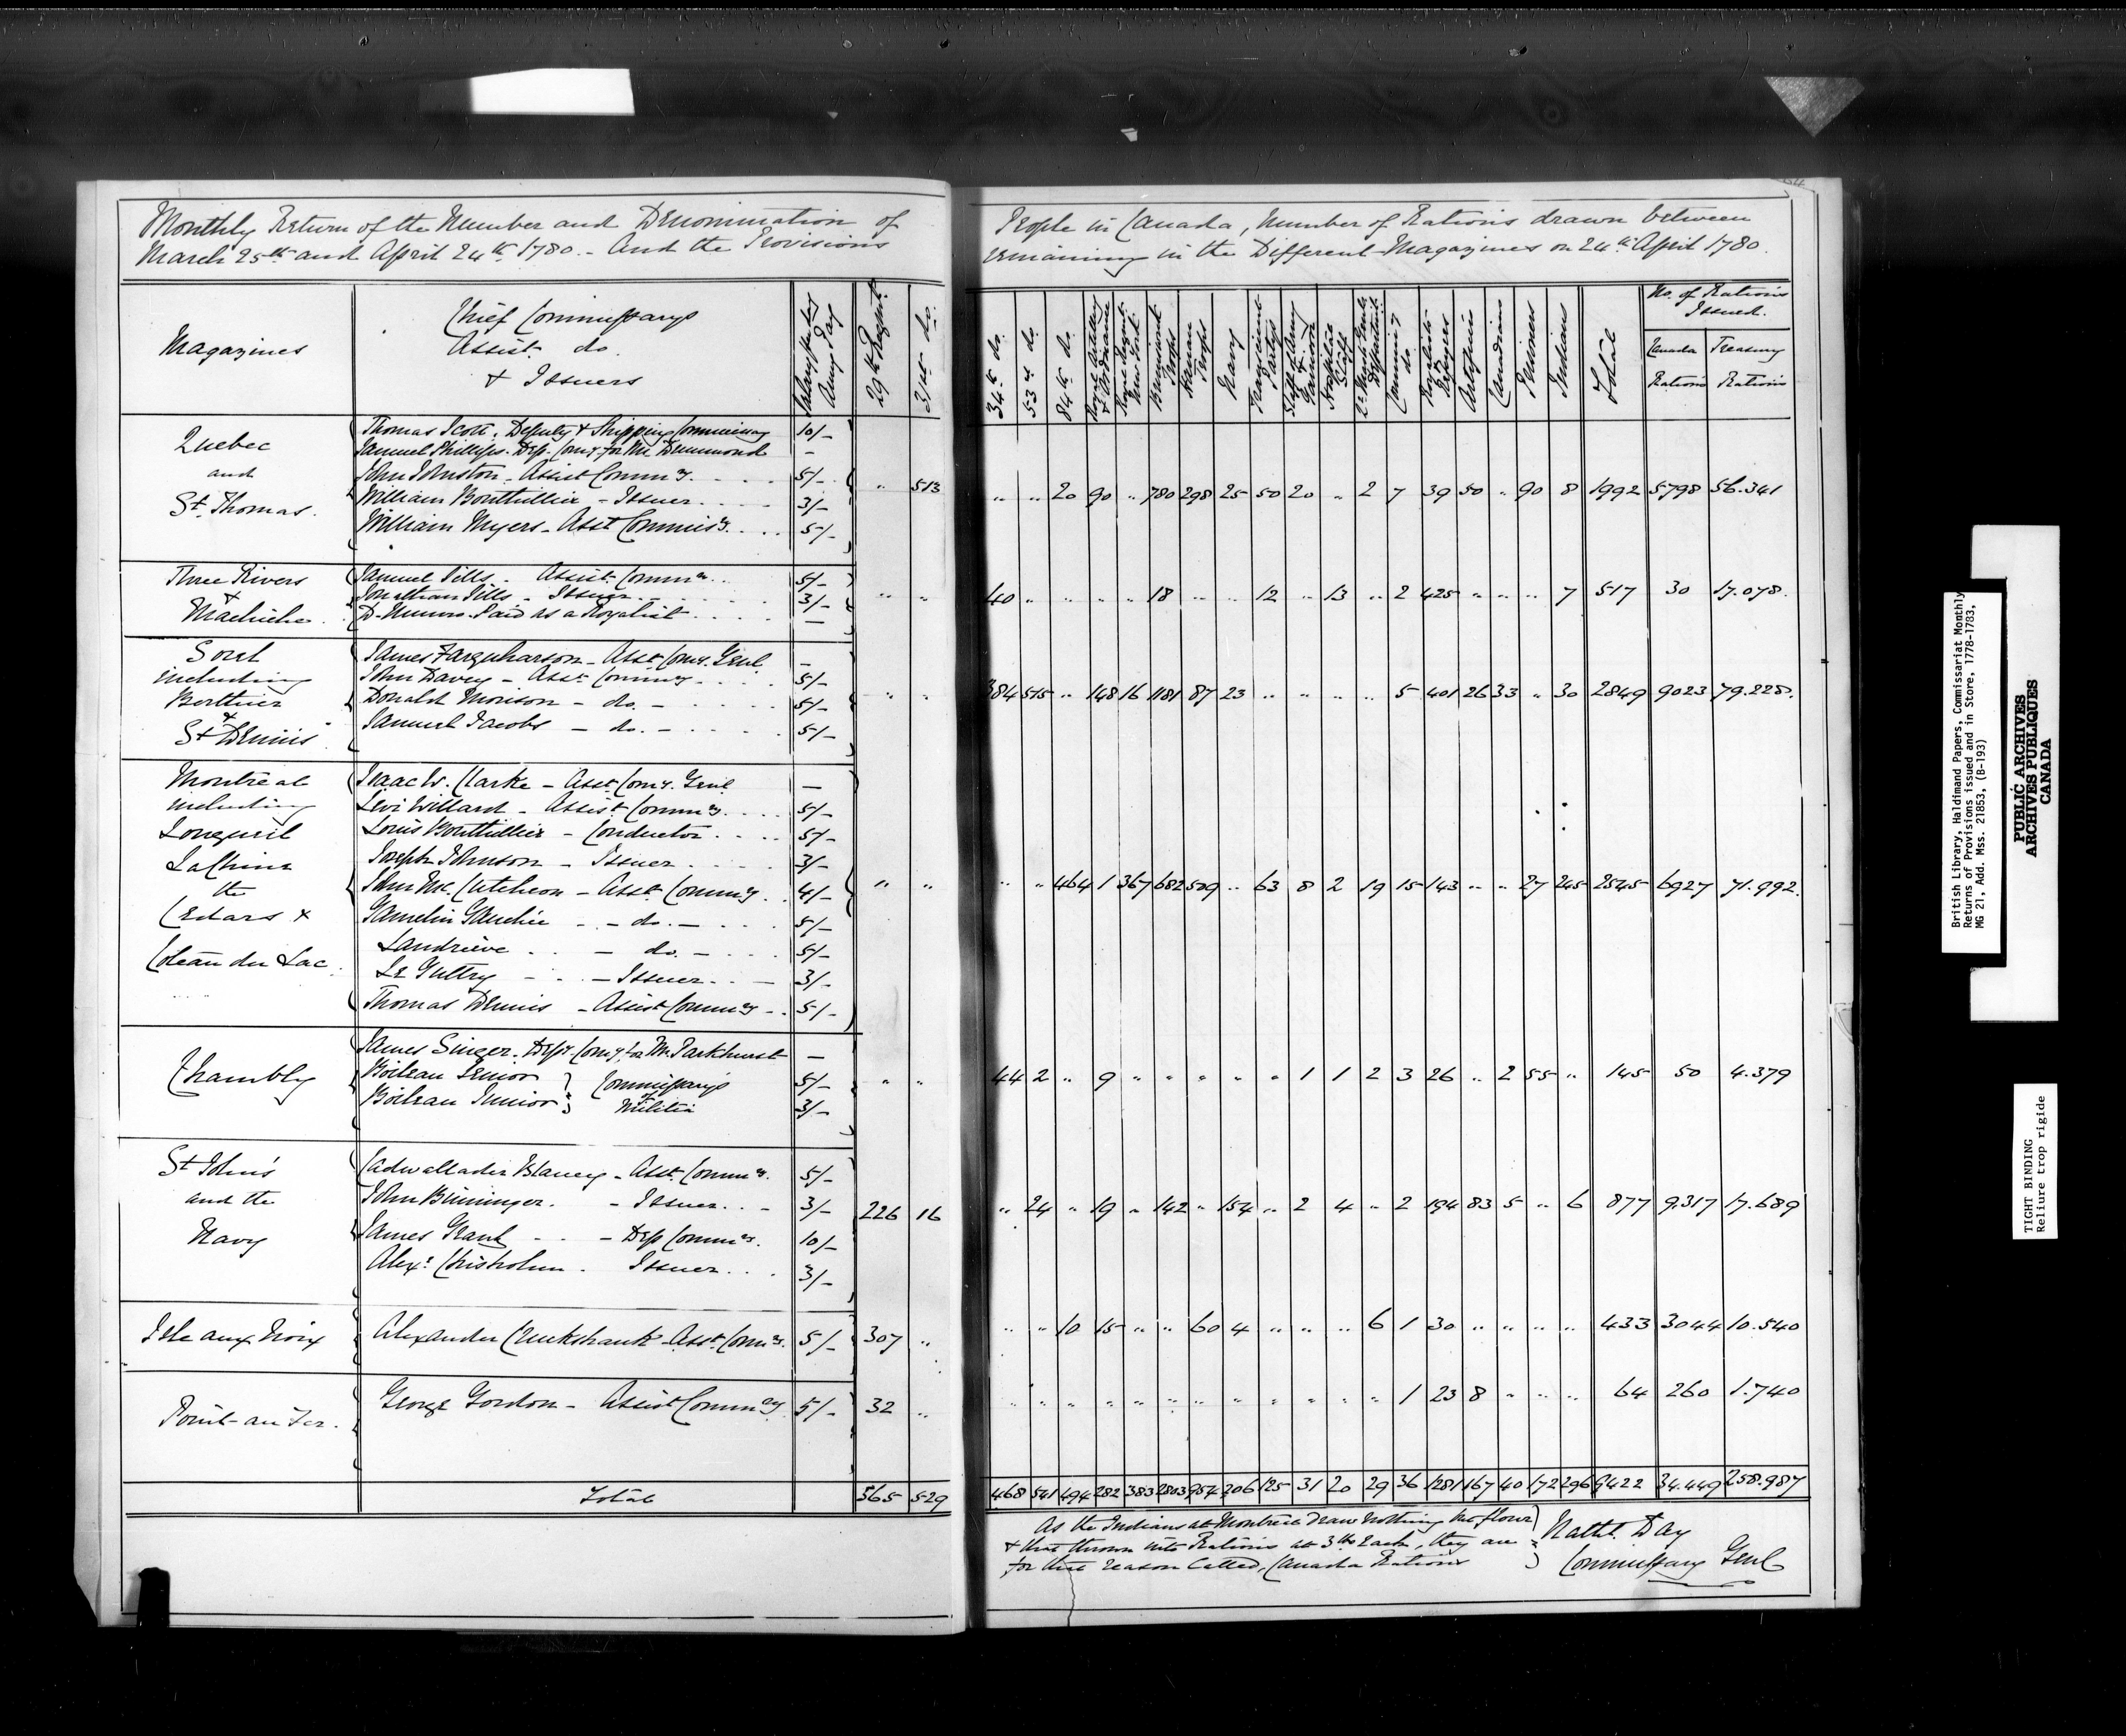 Monthly Return of the Number and Denomination of
March 25th and April 24th 1780. - And the Provisions
People in Canada, Number of Rations drawn between
remaining in the Different Magazines on 24th April 1780.
Magazines
Chief Commissarys
Assist. do.
& Issuers
Army Pay
29th Regimt.
31st do.
34th do.
53rd do.
84th do.
Royal Artillery & Ordnance
Brunswick Troops
Hanau Troops
Navy
Staff of Army & Garrison
Hospital Staff
Royalists & Refugees
Artificers
Canadians
Prisoners
Indians
Total
No. of Rations
Issued.
Canada
Rations
Treasury
Rations
Quebec
and
St. Thomas.
Thomas Scott. Deputy & Shipping Commissary 10/-
Samuel Phillips. Dep. Comy. for Mr. Drummond -
John Johnston - Assist Commy. 5/-
William Bouthillier - Issuer 3/-
William Myers - Asst Commisy. 5/-
" 513 " " 20 90 " 780 298 25 50 20 " 2 7 39 50 " 90 8 1992 5798 56.341
Three Rivers
&
Machiche
Samuel Sills - Assist. Commy. 5/-
Jonathan Sills - Issuer 3/-
D. Munro. Paid as a Royalist -
" " 40 " " " " 18 " " 12 " 13 " 2 425 " " " 7 517 30 17.078.
Sorel
including
Berthier
&
St Dennis
James Farquharson - Asst Comy. Genl. -
John Davey - Asst Commy 5/-
Donald Morison - do. - 5/-
Samuel Jacobs - do. - 5/-
" " 384 515 " 148 16 1181 87 23 " " " " 5 401 26 33 " 30 2849 9023 79.228.
Montreal
including
Longueil
La Chine
the
Cedars &
Coteau du Lac.
Isaac W. Clarke - Asst Comy. Genl -
Levi Willard - Assist Commy. 5/-
Louis Bouthillier - Conductor 5/-
Joseph Johnson - Issuer 3/-
John Mc. Cutcheon - Asst. Commy. 4/-
Gamelin Gauchie - do. - 5/-
Landrieve - do. - 5/-
Le Guttry - Issuer 3/-
Thomas Dennis - Assist Commy - 5/-
" " " " 464 1 367 682 509 " 63 8 2 19 15 143 " " 27 245 2545 6927 71.992.
Chambly
James Singer. Depy. Comy. for Mr. Parkhurst -
Boileau Senior 5/-
Boileau Junior 3/-
Commissarys
of
Militia
" " 44 2 " 9 " " " " " 1 1 2 3 26 " 2 55 " 145 50 4.379
St John's
and the
Navy
Cadwallader Blaney - Asst. Commy. 5/-
John Bininger. - Issuer 3/-
James Grant - Dep Commy. 10/-
Alexr. Chisholm. Issuer 3/-
226 16 " 24 " 19 " 142 " 154 " 2 4 " 2 194 83 5 " 6 877 9.317 17.689
Isle aux Noix
Alexander Cruckshank - Asst. Commy. 5/-
307 " " " 10 15 " " 60 4 " " " 6 1 30 " " " " 433 3044 10.540
Point-au Fer.
George Gordon - Assist Commy 5/-
32 " " " " " " " " " " " " " 1 23 8 " " " 64 260 1.740
Total 565 529 468 541 494 282 383 2803 954 206 125 31 20 29 36 1281 167 40 172 296 9422 34.449 258.987
As the Indians at Montreal draw nothing but flour
& that thrown into Rations at 3 lbs Each, they are
for that reason Called, Canada Rations
Nathl. Day
Commissary Genl
British Library, Haldimand Papers, Commissariat Monthly
Returns of Provisions issued and in Store, 1778-1783,
MG 21, Add. Mss. 21853, (B-193)
PUBLIC ARCHIVES
ARCHIVES PUBLIQUES
CANADA
TIGHT BINDING
Reliure trop rigide